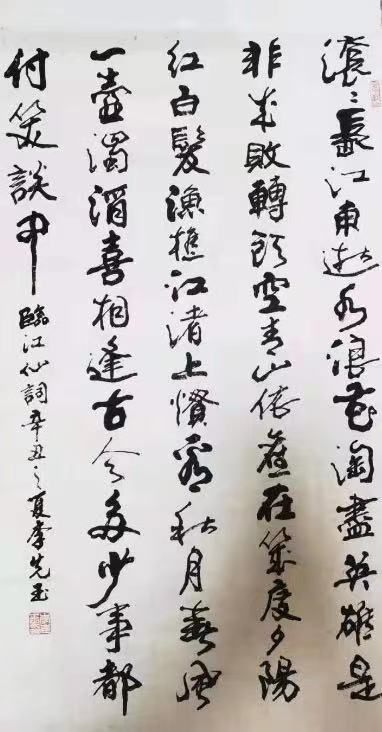 滚〻長江東逝水浪花淘盡英雄是
非成敗轉頭空青山依舊在幾度夕陽
紅白髮漁樵江渚上慣看秋月春風
一壺濁酒喜相逢古今多少事都
付笑談中
臨江仙詞辛丑之夏李先玉